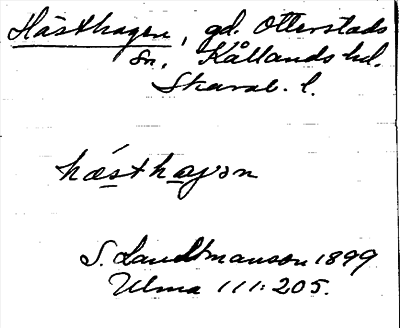 Hästhagen, gd. Otterstads
sn, Kållands hd.
Skarab. l.
hästhagɘn
S. Landtmanson 1899
Ulma 111:205.